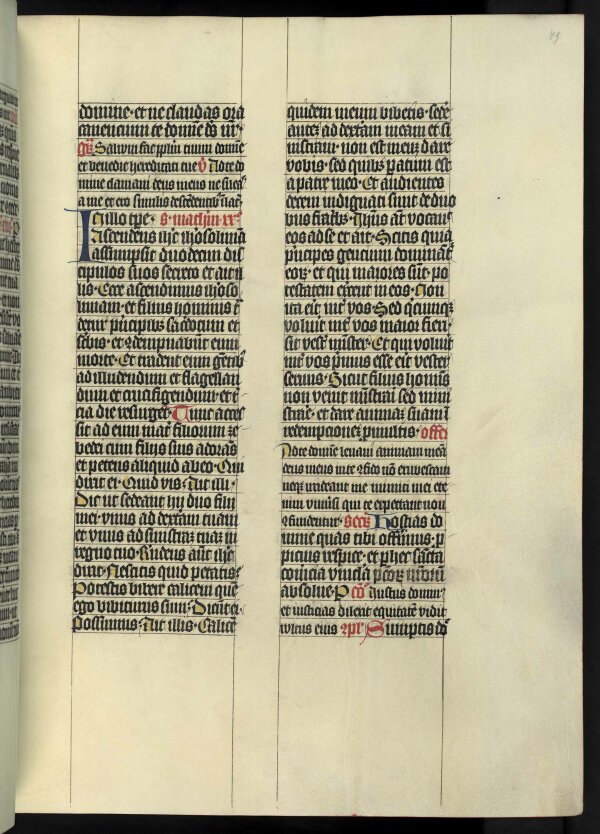 domine · et ne claudas ora
canencium te domine ds nr ·
Saluū fac ppłm tuum domine
et benedic hereditati tue V Ad te do
mine clamaui deus meus ne sileas
a me et ero similis descendentib
In illo tpe · s · mathm · xx°
Ascendens ihc iherosolimā
assumpsit duodecim dis
cipulos suos secreto et ait il
lis · Ecce ascendimus iheroso
limam · et filius hominis t
detur principibz sacdotum et
scribis · et 9dempnabūt eum
morte · Et tradent eum gentibz
ad illudendum et flagellan
dum et crucifigendum · et t
cia die resurget · Tunc acces
sit ad eum mater filiorum ze
bedei cum filijs suis adorās
et petens aliquid ab eo · Qui
dixit ei · Quid vis · Ait illi ·
Dic ut sedeant hij duo filij
mei · vnus ad dextam tuam
et vnus ad sinistram tuam in
regno tuo · Rndens aut ihc
dixit · Nescitis quid petatis ·
Potestis bibere calicem quē
ego bibiturus sum · Dicūt ei ·
Possumus · Ait illis · Calicē
quidem meum bibetis · sedē
autē ad dexteram meam et si
nistram · non est meū dare
vobis · sed quibz paratum est
a patre meo · Et audientes
decem indignati sunt de duo
bus fratribz · Ihus aūt vocauit
eos ad se et ait · Scitis quia
principes gencium dominātᵗ
eorz · et qui maiores sūt · po
testatem exercent in eos · Non
ita erit int vos · Sed qcumqz
voluit int vos maior fieri ·
sit vest mister · Et qui voluit
int vos primus esse erit vester
seruus · Sicut filius hominis
non venit ministrari sed minis
trare · et dare animam suam
redempcionez p multis · offer
Ad te domine leuaui animam meā
deus meus in te 9fido nō erubescam
neqz irrideant me inimici mei ete
nim vniūsi qui te expectant non
9fundentur · Secr Hostias do
mine quas tibi offerimus p
picius respice · et p hec sancta
comercia vincla pctorz nrorum
absolue · P Co Iustus domin
et iusticias dilexit equitatē vidit
vultus eius 9pl Sumptis dn